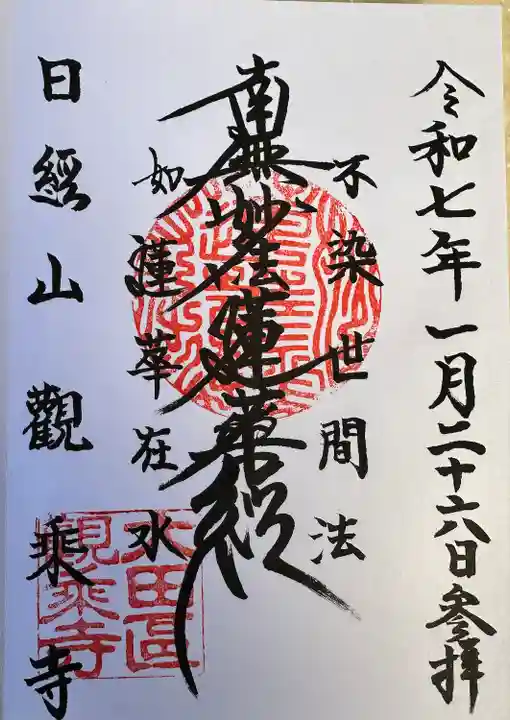 令和七年一月二十六日参拝
不染世間法
南無妙法蓮華經
如蓮華在水
日經山觀乘寺
大田區
觀乘寺